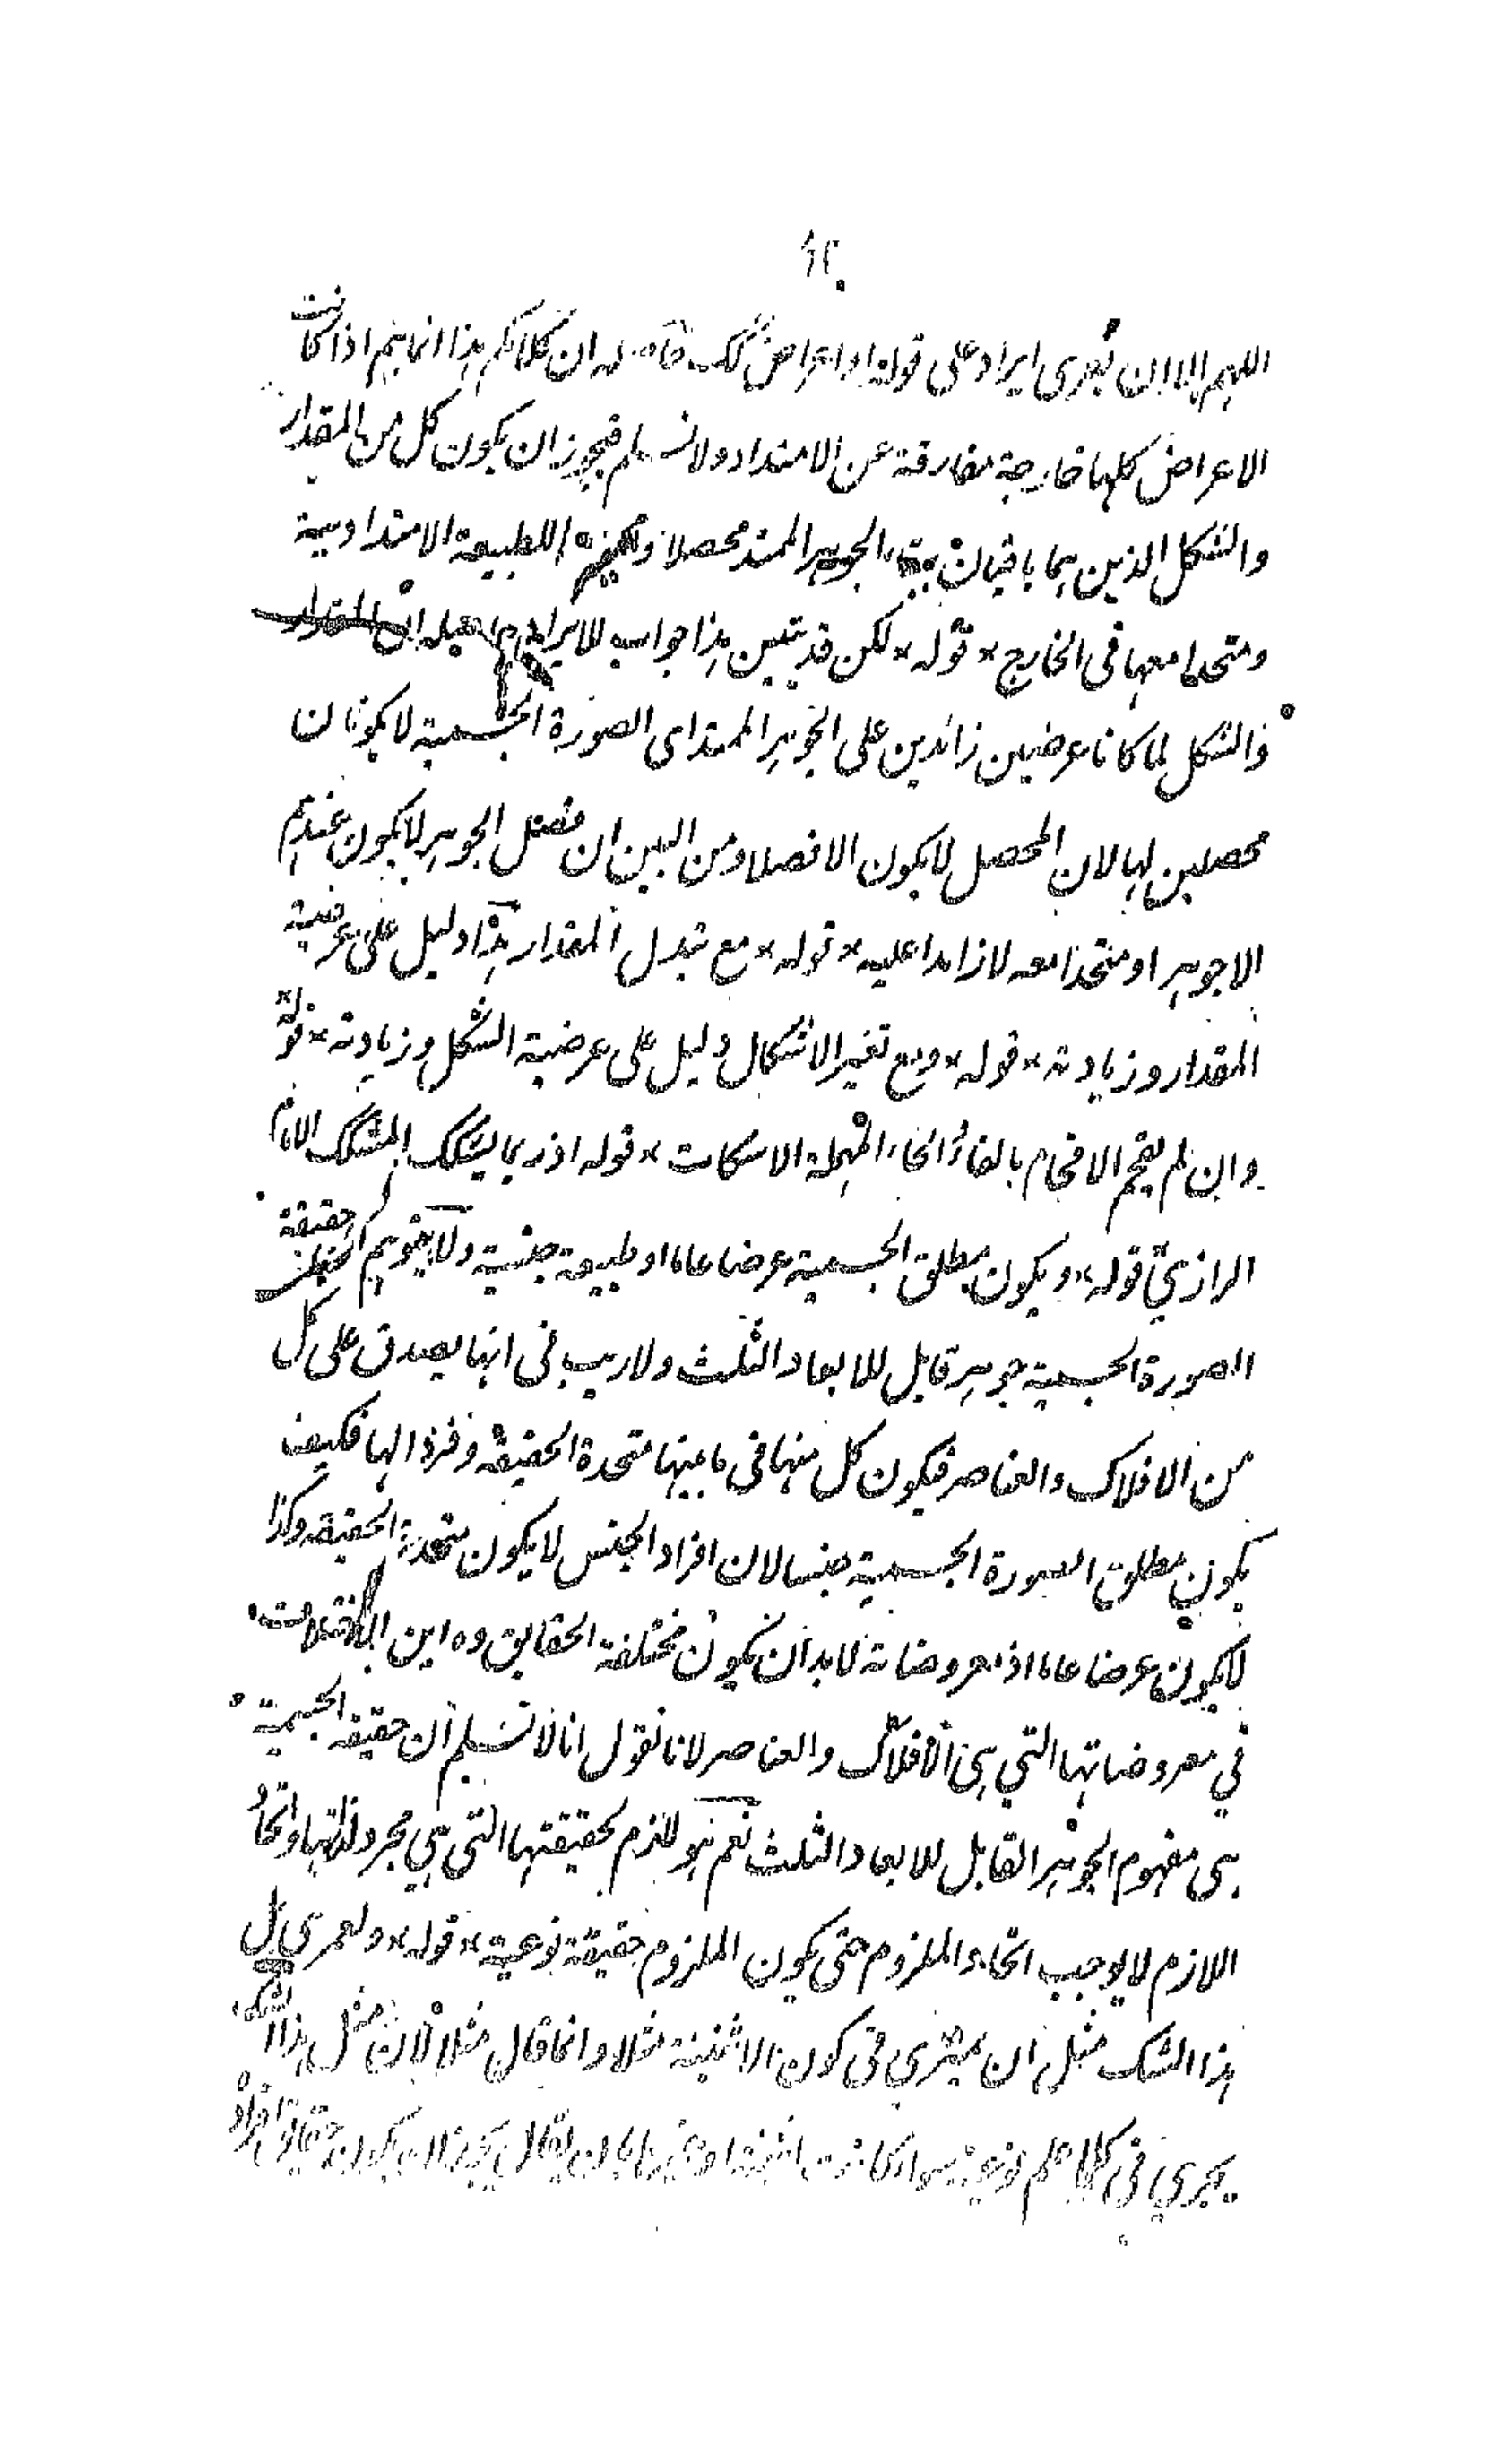 اللهم الا ان يجرى ايراد على قوله او اعراض كك ان كلامكم هذا انما يتم اذا كانت
الاعراض كلها خارجة مفارقة عن الامتداد ولا نسلم فيجوز ان يكون كل من المقدار
والشكل الذين هما باقيان الجوهر الممتد محصلا للطبيعة الامتدادية
ومتحدا معها فى الخارج * قوله * لكن قد تبين هذا جواب للايراد
والشكل لما كانا عرضيين زائدين على الجوهر الممتد اى الصورة الجسمية لا يكونان
محصلين لها لان المحصل لا يكون الا فصلا ومن البين ان فصل الجوهر لا يكون عندهم
الا جوهر او متحدا معه لا زايدا عليه * قوله * مع تبدل المقدار هذا دليل على عرضية
المقدار وزيادته * قوله * ومع تغير الاشكال دليل على عرضية الشكل وزيادته * قوله *
وان لم يقحم الاقحام بالقاف والحاء المهملة الاسكات * قوله اذ ربما يشكك المشكك الامام
الرازي قوله * ويكون مطلق الجسمية عرضا عاما او طبيعة جنسية ولا حقيقة
الصورة الجسمية جوهر قابل للابعاد الثلث ولا ريب فى انها يصدق على كل
من الافلاك والعناصر فيكون كل منها فى ما بينها متحدة الحقيقة وفردا لها فكيف
يكون مطلق الصورة الجسمية جنسا لان افراد الجنس لا يكون متحدة الحقيقة وكذا
لا يكون عرضا عاما اذ معروضاته لا بد ان تكون مختلفة الحقايق
في معروضاتها التي هى الافلاك والعناصر لانا نقول انا لا نسلم ان حقيقة الجسمية
هى مفهوم الجوهر القابل للابعاد الثلث نعم هو لازم لحقيقتها التى هي مجرد ذاتها واتحاد
اللازم لا يوجب اتحاد الملزوم حتى يكون الملزوم حقيقة نوعية * قوله * ولعمرى بل
هذا الشك مثل ان يمترى فى كون الاثنينة مثلا وانما قال مثلا لان مثل هذا الشك
يجري فى كل نوعية سواء كانت يقال يجوز ان يكون حقايق افراد